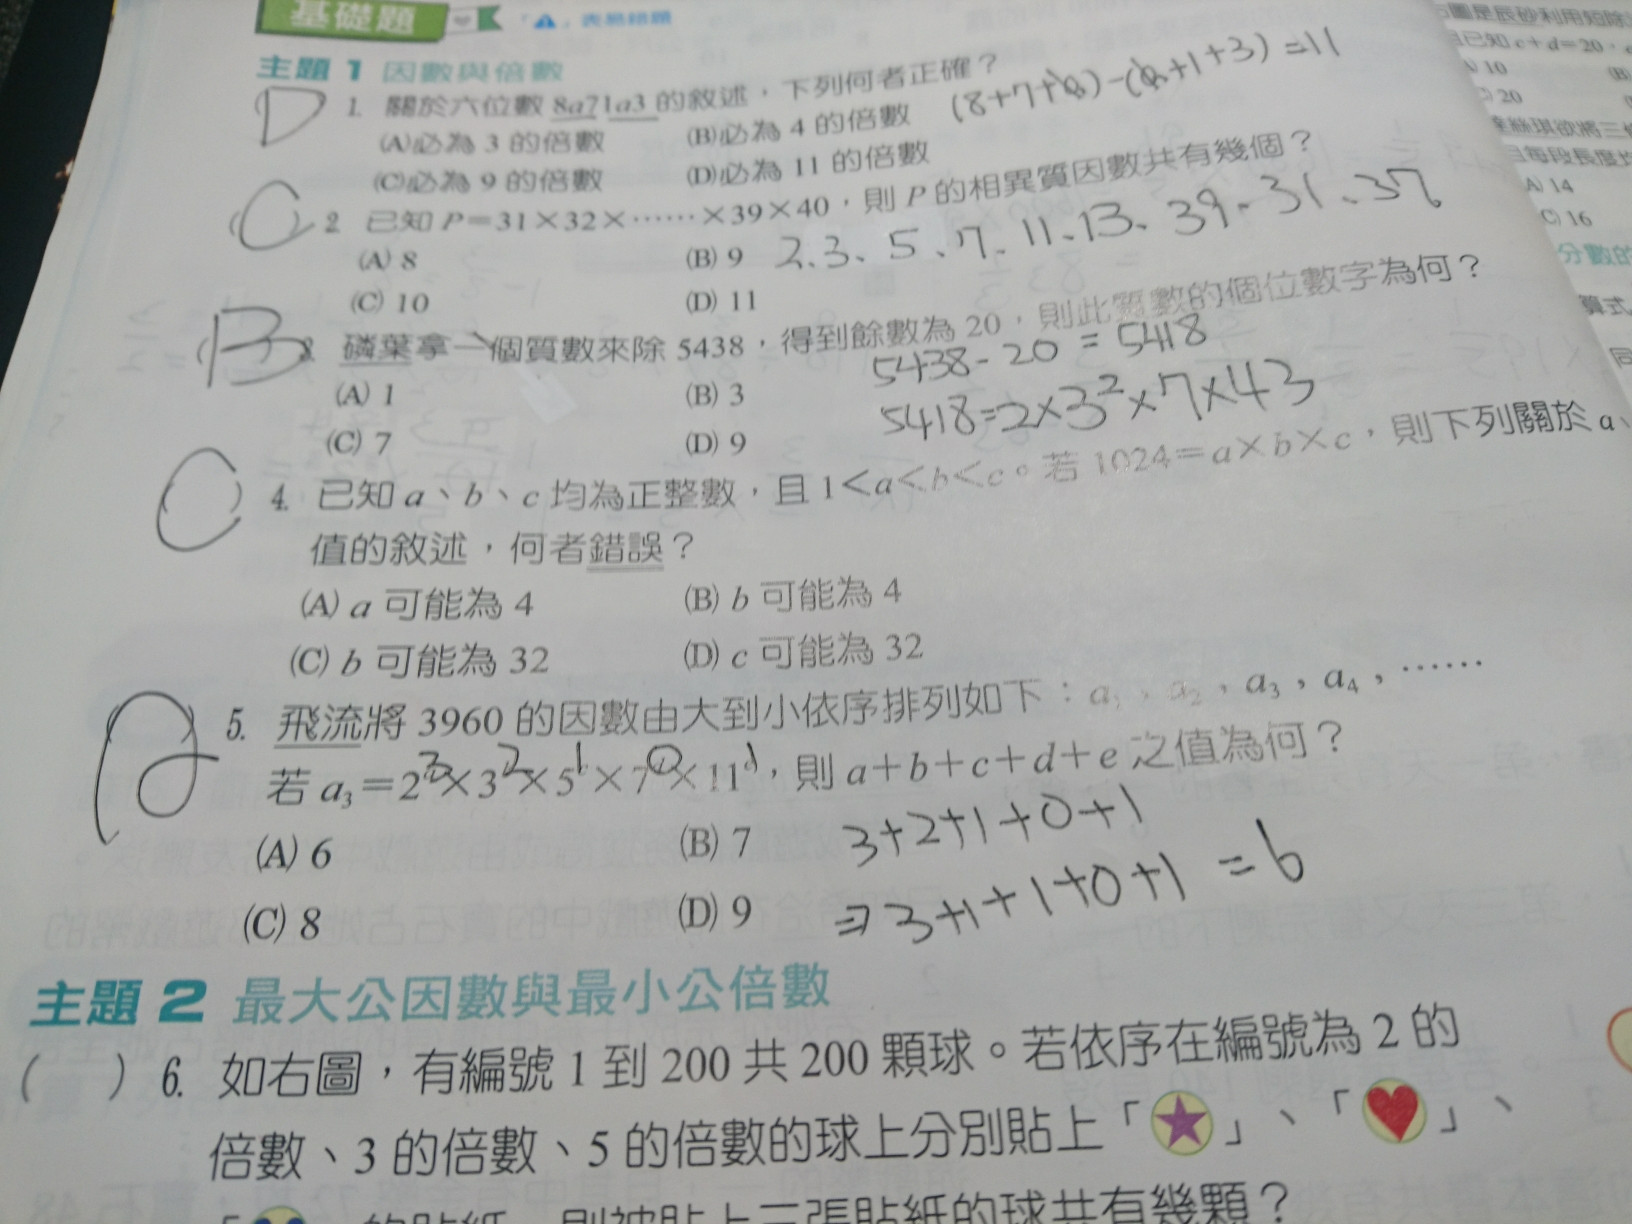 基礎題
主題 1 因數與倍數
D 1. 關於六位數 8a71a3 的敘述，下列何者正確？
(8+7+a)-(a+1+3)=11
(A)必為 3 的倍數 (B)必為 4 的倍數
(C)必為 9 的倍數 (D)必為 11 的倍數
C 2. 已知 P=31×32×……×39×40，則 P 的相異質因數共有幾個？
(A) 8 (B) 9
2、3、5、7、11、13、39、31、37
(C) 10 (D) 11
B 3. 磷葉拿一個質數來除 5438，得到餘數為 20，則此質數的個位數字為何？
5438-20=5418
(A) 1 (B) 3
5418=2×3²×7×43
(C) 7 (D) 9
C 4. 已知 a、b、c 均為正整數，且 1<a<b<c。若 1024=a×b×c，則下列關於 a、
值的敘述，何者錯誤？
(A) a 可能為 4 (B) b 可能為 4
(C) b 可能為 32 (D) c 可能為 32
A 5. 飛流將 3960 的因數由大到小依序排列如下：a₁，a₂，a₃，a₄，……
若 a₃=2 ×3 ×5 ×7 ×11 ，則 a+b+c+d+e 之值為何？
(A) 6 (B) 7
3+2+1+0+1
(C) 8 (D) 9
⇒3+1+1+0+1=6
主題 2 最大公因數與最小公倍數
( ) 6. 如右圖，有編號 1 到 200 共 200 顆球。若依序在編號為 2 的
倍數、3 的倍數、5 的倍數的球上分別貼上「★」、「♥」、
的貼紙，則被貼上三張貼紙的球共有幾顆？
已知 c+d=20，
10 (B)
20
欲將三
且每段長度
(A) 14
(C) 16
分數的
算式
同